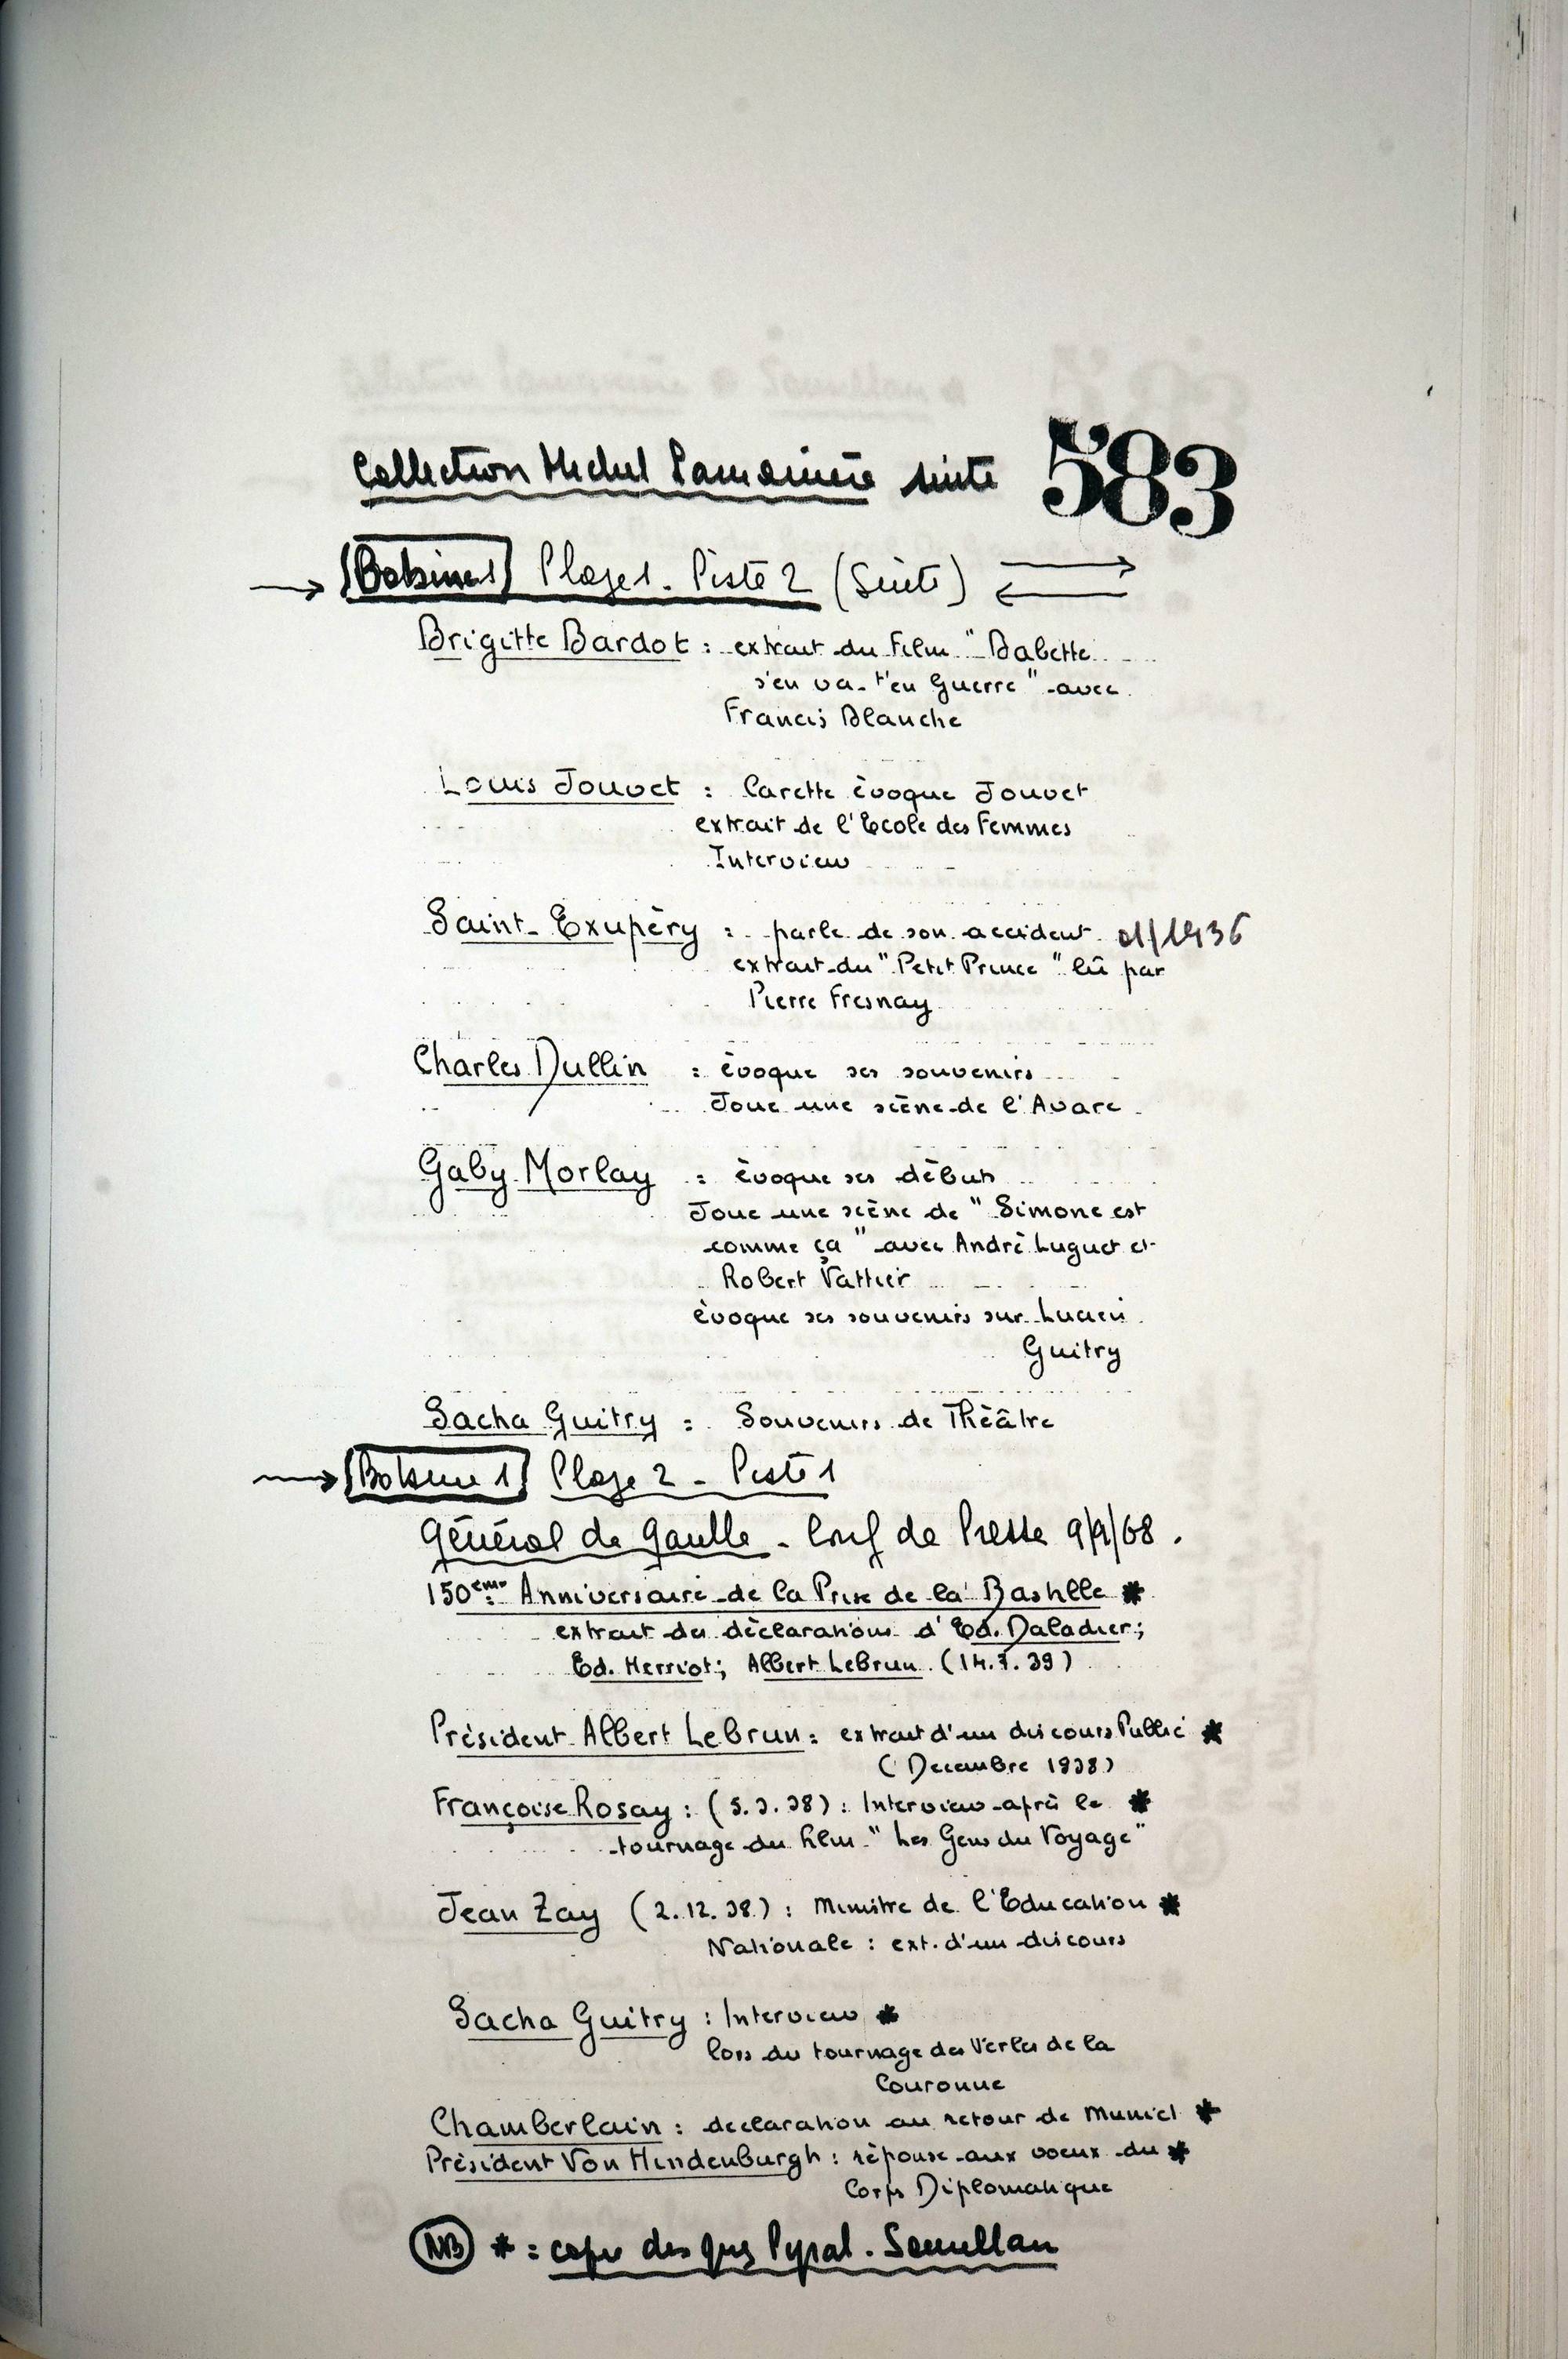 Collection Michel Lamarinière suite 583
→ Bobine 1 Plage 1 - Piste 2 (Suite)
Brigitte Bardot : extrait du Film "Babette
s'en va-t'en Guerre" avec
Francis Blanche
Louis Jouvet : Carette èvoque Jouvet
extrait de l'Ecole des Femmes
Interview
Saint-Exupèry : parle de son accident 01/1936
extrait du "Petit Prince" lû par
Pierre Fresnay
Charles Dullin : èvoque ses souvenirs
Joue une scène de l'Avare
Gaby Morlay : èvoque ses dèbuts
Joue une scène de "Simone est
comme ça" avec Andrè Luguet et
Robert Vattier
èvoque ses souvenirs sur Lucien
Guitry
Sacha Guitry : Souvenirs de Thèâtre
→ Bobine 1 Plage 2 - Piste 1
Général de Gaulle - Conf de Presse 9/9/68.
150ème Anniversaire de la Prise de la Bastille *
extrait des dèclarations d'Ed. Daladier;
Ed. Herriot; Albert Lebrun (14.7.39)
Prèsident Albert Lebrun : extrait d'un discours Public *
(Decembre 1938)
Françoise Rosay : (5.3.38) : Interview après le *
tournage du film "Les Gens du Voyage"
Jean Zay (2.12.38) : Ministre de l'Education *
Nationale : ext. d'un discours
Sacha Guitry : Interview *
lors du tournage des Perles de la
Couronne
Chamberlain : declaration au retour de Munich *
Prèsident Von Hindenburgh : rèponse aux voeux du *
Corps Diplomatique
NB * : copie des Pyral.